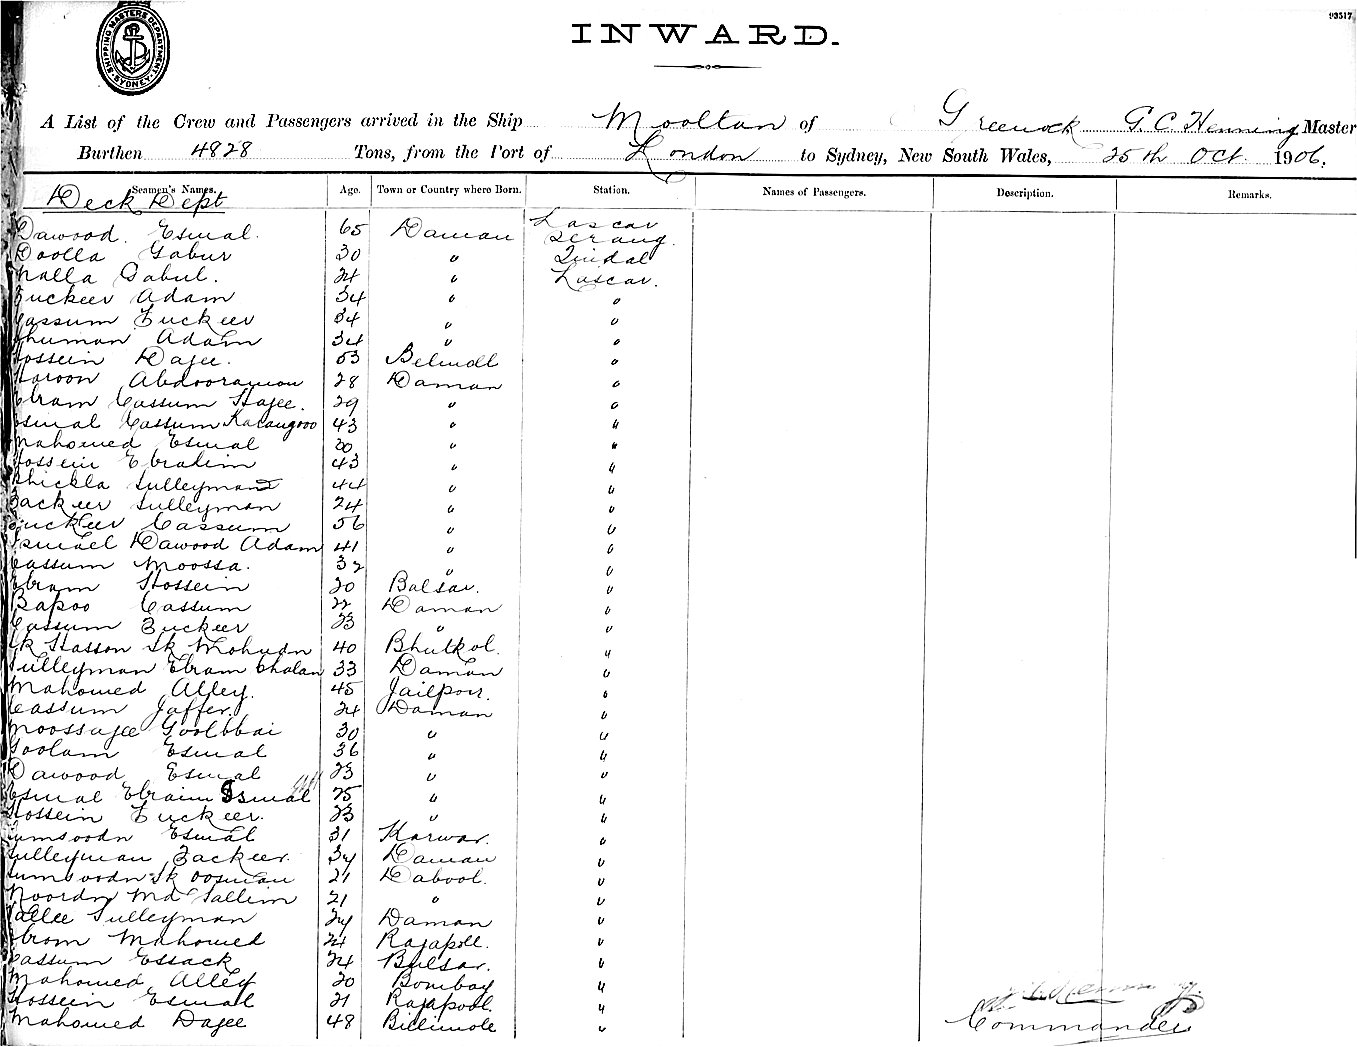 93517
SHIPPING MASTERS DEPARTMENT SYDNEY
INWARD.
A List of the Crew and Passengers arrived in the Ship Mooltan of Greenock G. C. Henning Master
Burthen 4828 Tons, from the Port of London to Sydney, New South Wales, 25th Oct. 1906.
Seamen's Names. Age. Town or Country where Born. Station. Names of Passengers. Description. Remarks.
Deck Dept
Dawood Esmal. 65 Daman Lascar Serang.
Doolla Gabur 30 " Tindal
Gabul. 24 " Lascar.
Fuckeer Adam 34 " "
Cassum Fuckeer 34 " "
Adam 34 " "
Hossein Dajee. 53 "
Haroon 28 Daman "
Ebram Cassum Hajee. 29 " "
Esmal Cassum 43 " "
Mahomed Esmal 30 " "
Hossein Ebrahim 43 " "
Sulleyman 44 " "
Backeer Sulleyman 24 " "
Fuckeer Cassum 56 " "
Ismael Dawood Adam 41 " "
Cassum Moossa. 32 " "
Ebram Hossein 20 Balsar. "
Bapoo Cassum 22 Daman "
Cassum Fuckeer 23 " "
Sk Hasson Sk Mohudn 40 Bhutkol. "
Sulleyman Ebram 33 Daman "
Mahomed Alley. 45 "
Cassum Jaffer. 24 Daman "
Moossajee 30 " "
Goolam Esmal 36 " "
Dawood Esmal 23 " "
Esmal Ebraim Esmal 25 " "
Hossein Fuckeer. 23 " "
Esmal 31 Karwar. "
Sulleyman Backeer. 34 Daman "
Sk Oosman 21 Dabool. "
Noordn Md Sallim 21 " "
Sulleyman 24 Daman "
Ebrom Mahomed 24 "
Cassum Essack 24 Bulsar. "
Mahomed Alley 20 Bombay "
Hossein Esmal 21 Rajapool. "
Mahomed Dajee 48 Billimole "
Commander